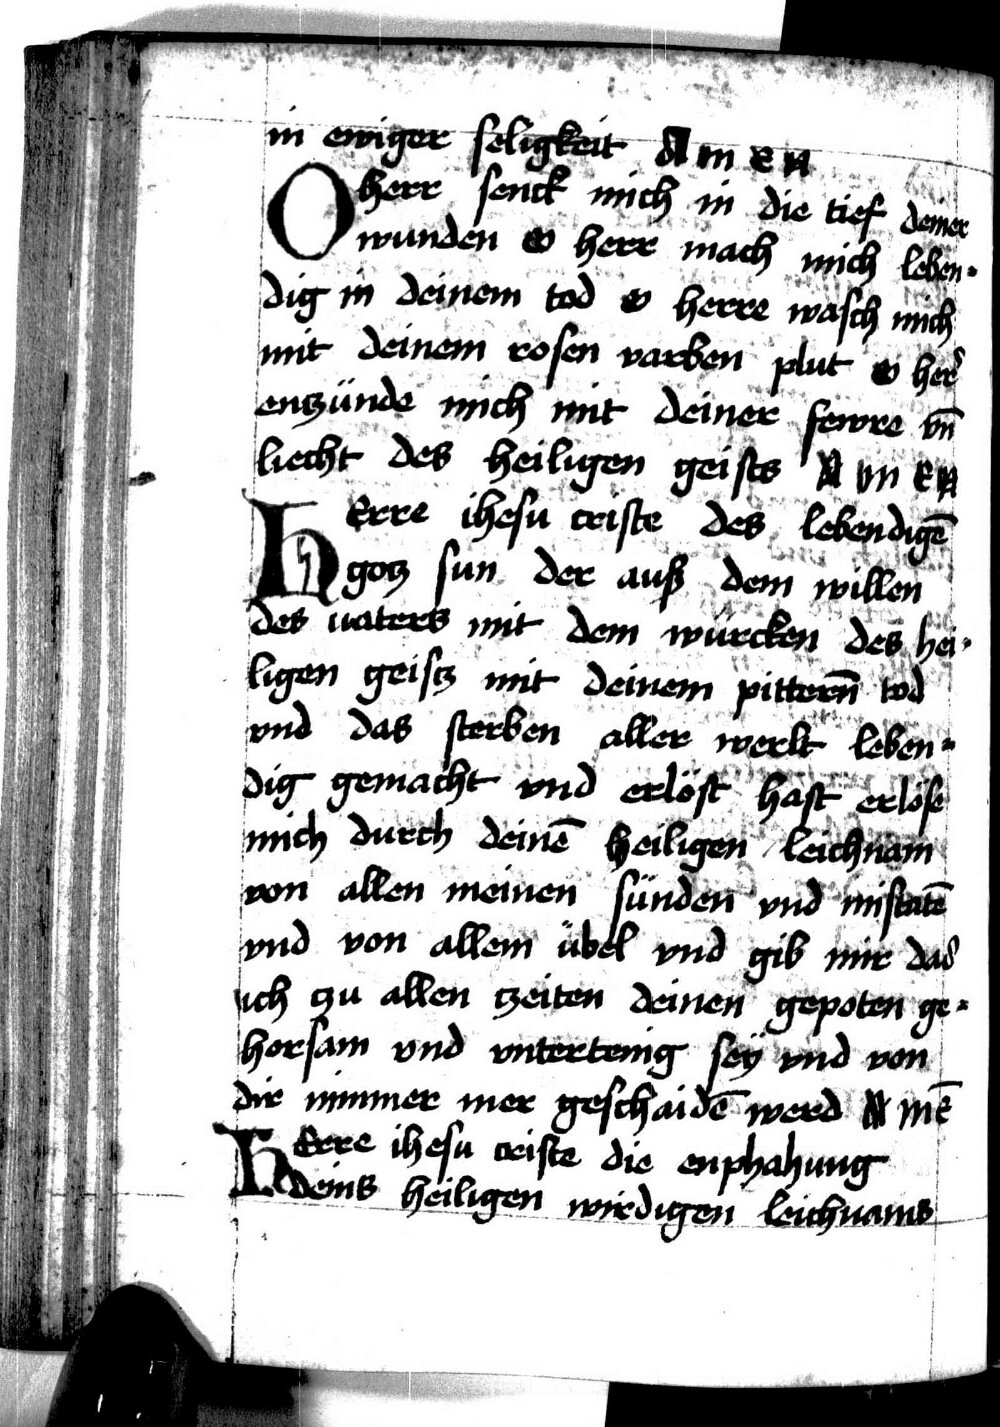 in ewiger seligkeit AMEN
O herr senck mich in die tief deiner
wunden o herr mach mich leben-
dig in deinem tod o herre wasch mich
mit deinem rosen varben plut o her̃
entzünde mich mit deiner fewre vn̄
liecht des heiligen geists AMEN
HErre ihesu criste des lebendigē
gotz sun der auß dem willen
des uaters mit dem würcken des hei-
ligen geistz mit deinem pittern̄ tod
vnd das sterben aller werlt leben-
dig gemacht vnd erlöst hast erlöse
mich durch deinē heiligen leichnam
von allen meinen sünden vnd mistatē
vnd von allem übel vnd gib mir das
ich tzu allen tzeiten deinen gepoten ge-
horsam vnd vntertenig seÿ vnd von
dir nimmer mer geschaidē werd AMĒ
HErre ihesu criste die enphahung
deins heiligen wirdigen leichnams